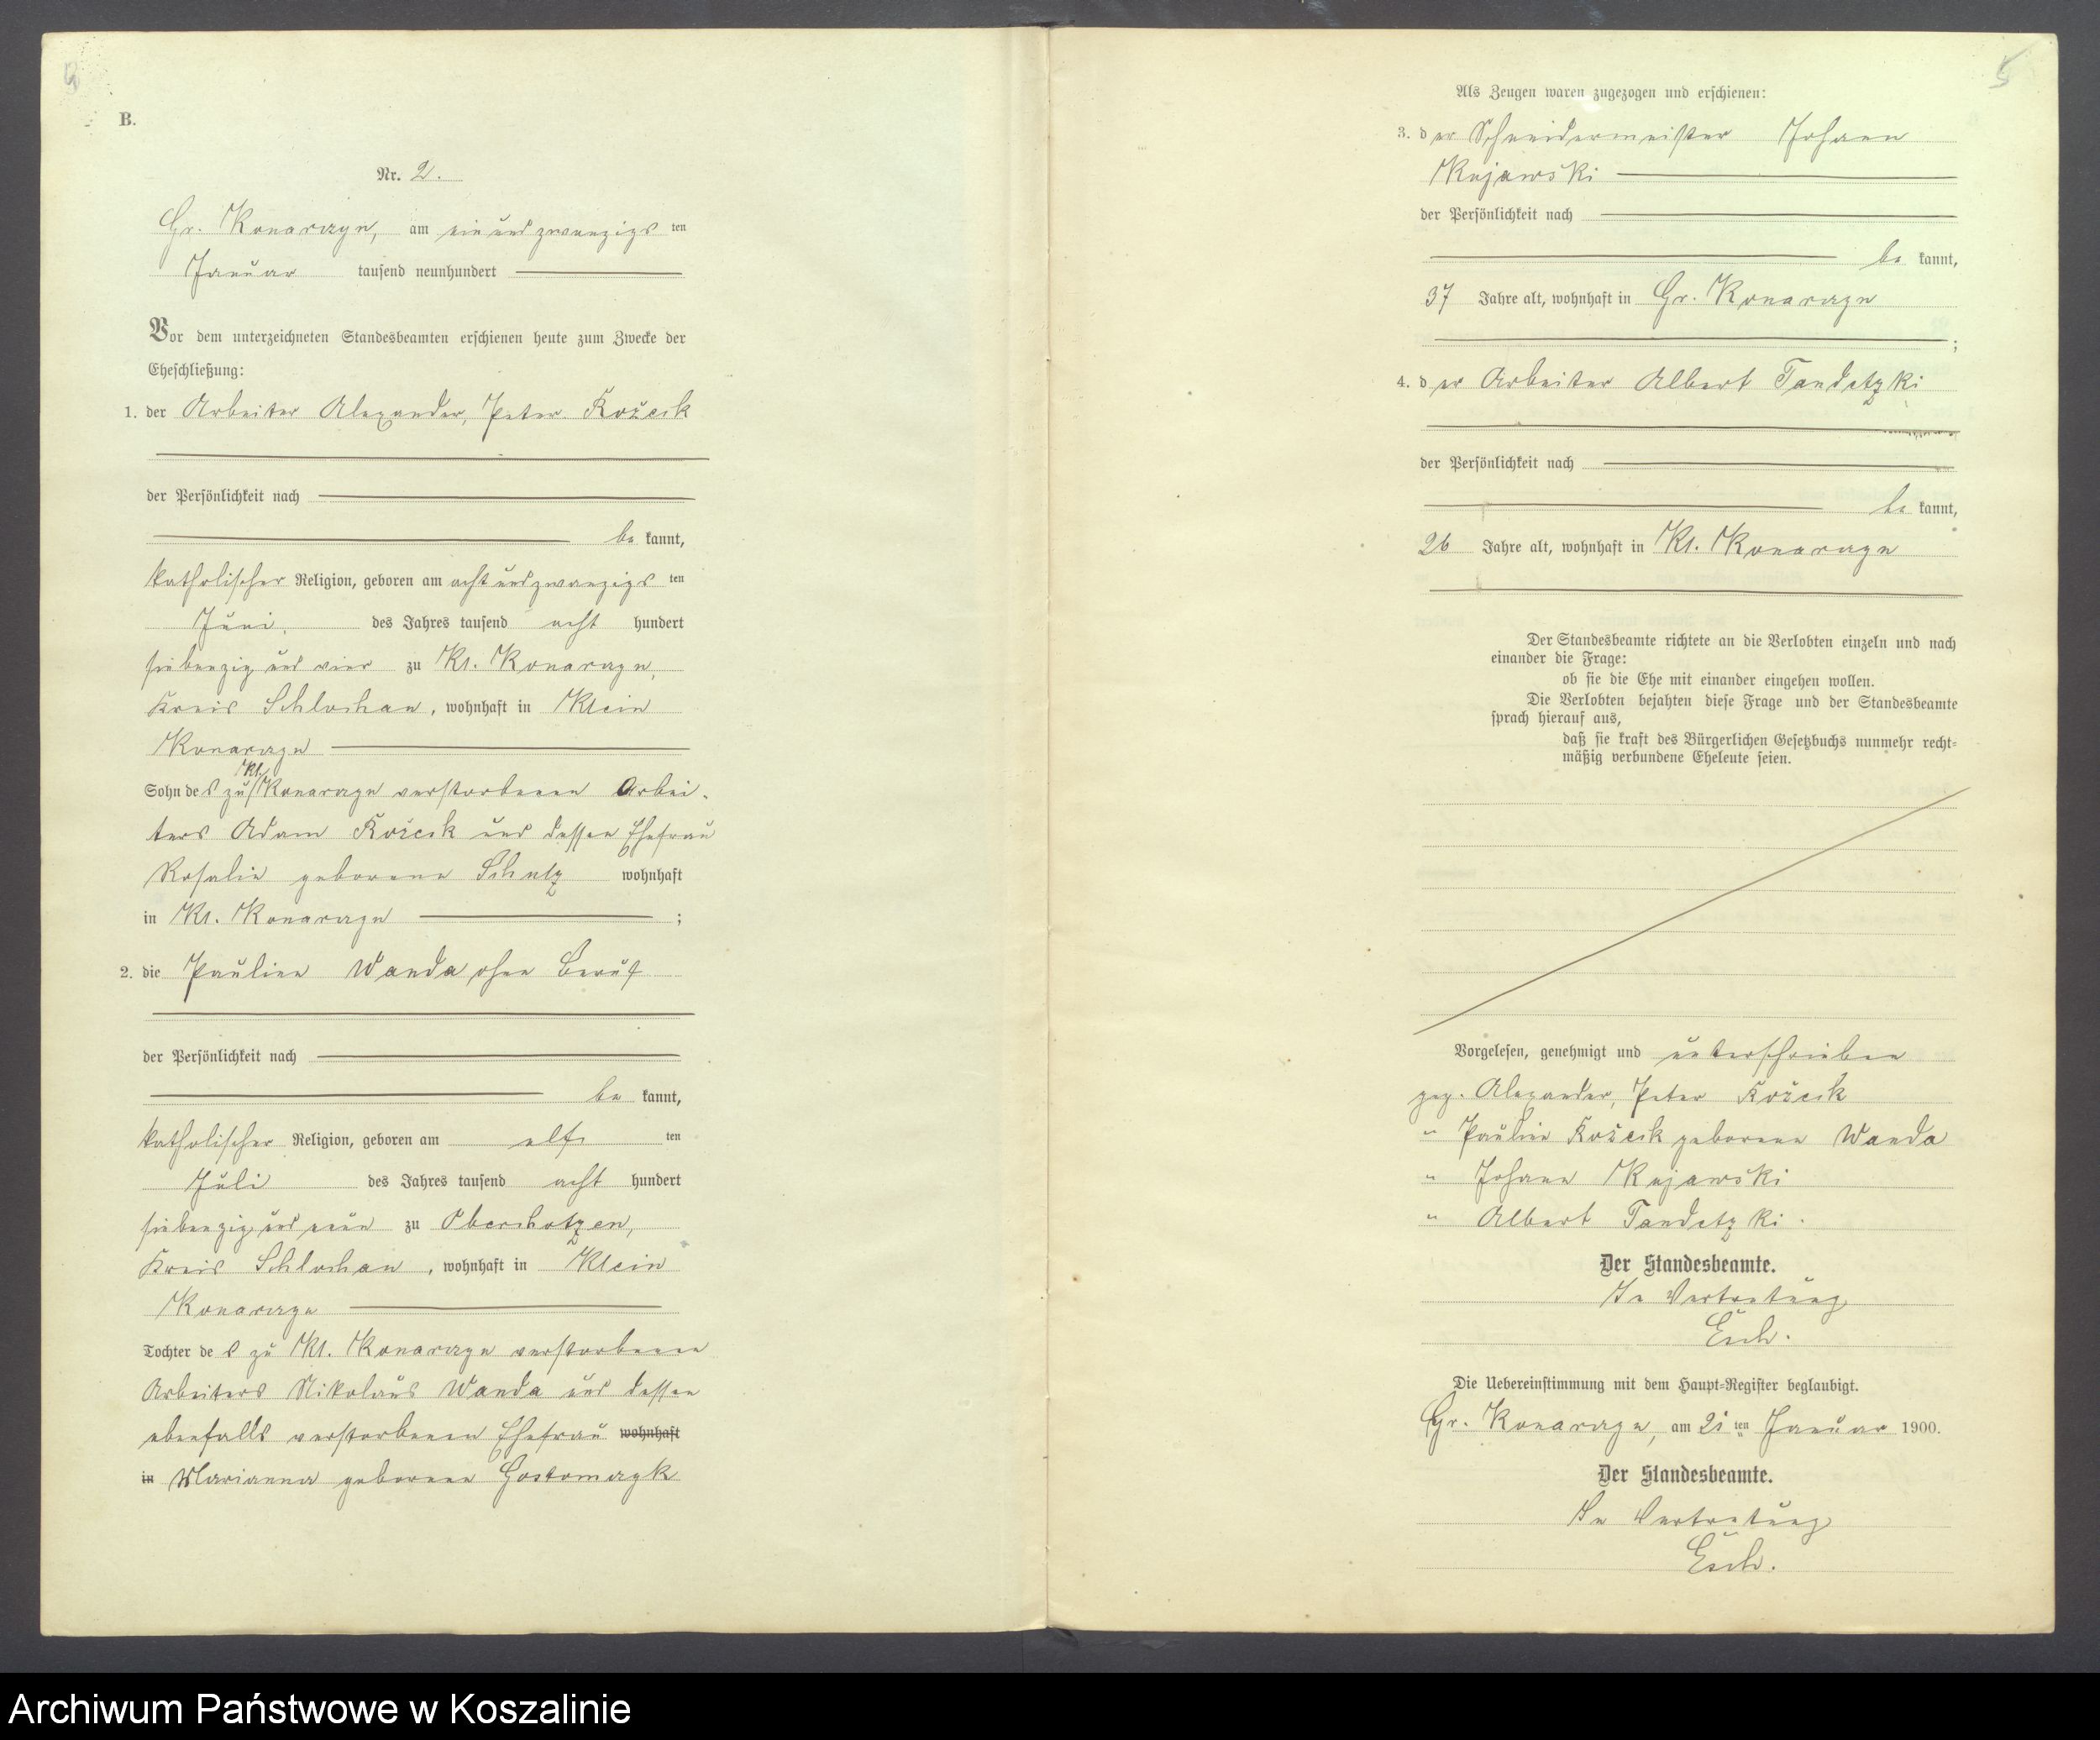 B.
Nr. 2.
Gr. Konarczyn, am ein und zwanzigs ten
Januar tausend neunhundert
Vor dem unterzeichneten Standesbeamten erschienen heute zum Zwecke der
Eheschließung:
1. der Arbeiter Alexander, Peter Kožcik
der Persönlichkeit nach
be kannt,
katholischer Religion, geboren am acht und zwanzigs ten
Juni, des Jahres tausend acht hundert
siebenzig und vier zu Kl. Konarczyn,
Kreis Schlochau, wohnhaft in Klein
Konarczyn
Sohn des zu Kl. Konarczyn verstorbenen Arbei-
ters Adam Kožcik und dessen Ehefrau
Rosalie geborene Schulz wohnhaft
in Kl. Konarczyn ;
2. die Pauline Wanda ohne Beruf
der Persönlichkeit nach
be kannt,
katholischer Religion, geboren am elf ten
Juli des Jahres tausend acht hundert
siebenzig und neun zu Oberchotzen,
Kreis Schlochau, wohnhaft in Klein
Konarczyn
Tochter des zu Kl. Konarczyn verstorbenen
Arbeiters Nikolaus Wanda und dessen
ebenfalls verstorbenen Ehefrau wohnhaft
in Marianna geborene Gostomczyk
5
Als Zeugen waren zugezogen und erschienen:
3. der Schneidermeister Johann
Kujawski
der Persönlichkeit nach
be kannt,
37 Jahre alt, wohnhaft in Gr. Konarczyn
;
4. der Arbeiter Albert Tandetzki
der Persönlichkeit nach
be kannt,
26 Jahre alt, wohnhaft in Kl. Konarczyn
Der Standesbeamte richtete an die Verlobten einzeln und nach
einander die Frage:
ob sie die Ehe mit einander eingehen wollen.
Die Verlobten bejahten diese Frage und der Standesbeamte
sprach hierauf aus,
daß sie kraft des Bürgerlichen Gesetzbuchs nunmehr recht-
mäßig verbundene Eheleute seien.
Vorgelesen, genehmigt und unterschrieben
gez. Alexander, Peter Kožcik
" Pauline Kožcik geborene Wanda
" Johann Kujawski
" Albert Tandetzki.
Der Standesbeamte.
In Vertretung
Esch.
Die Uebereinstimmung mit dem Haupt-Register beglaubigt.
Gr. Konarczyn, am 21 ten Januar 1900.
Der Standesbeamte.
In Vertretung
Esch.
Archiwum Państwowe w Koszalinie